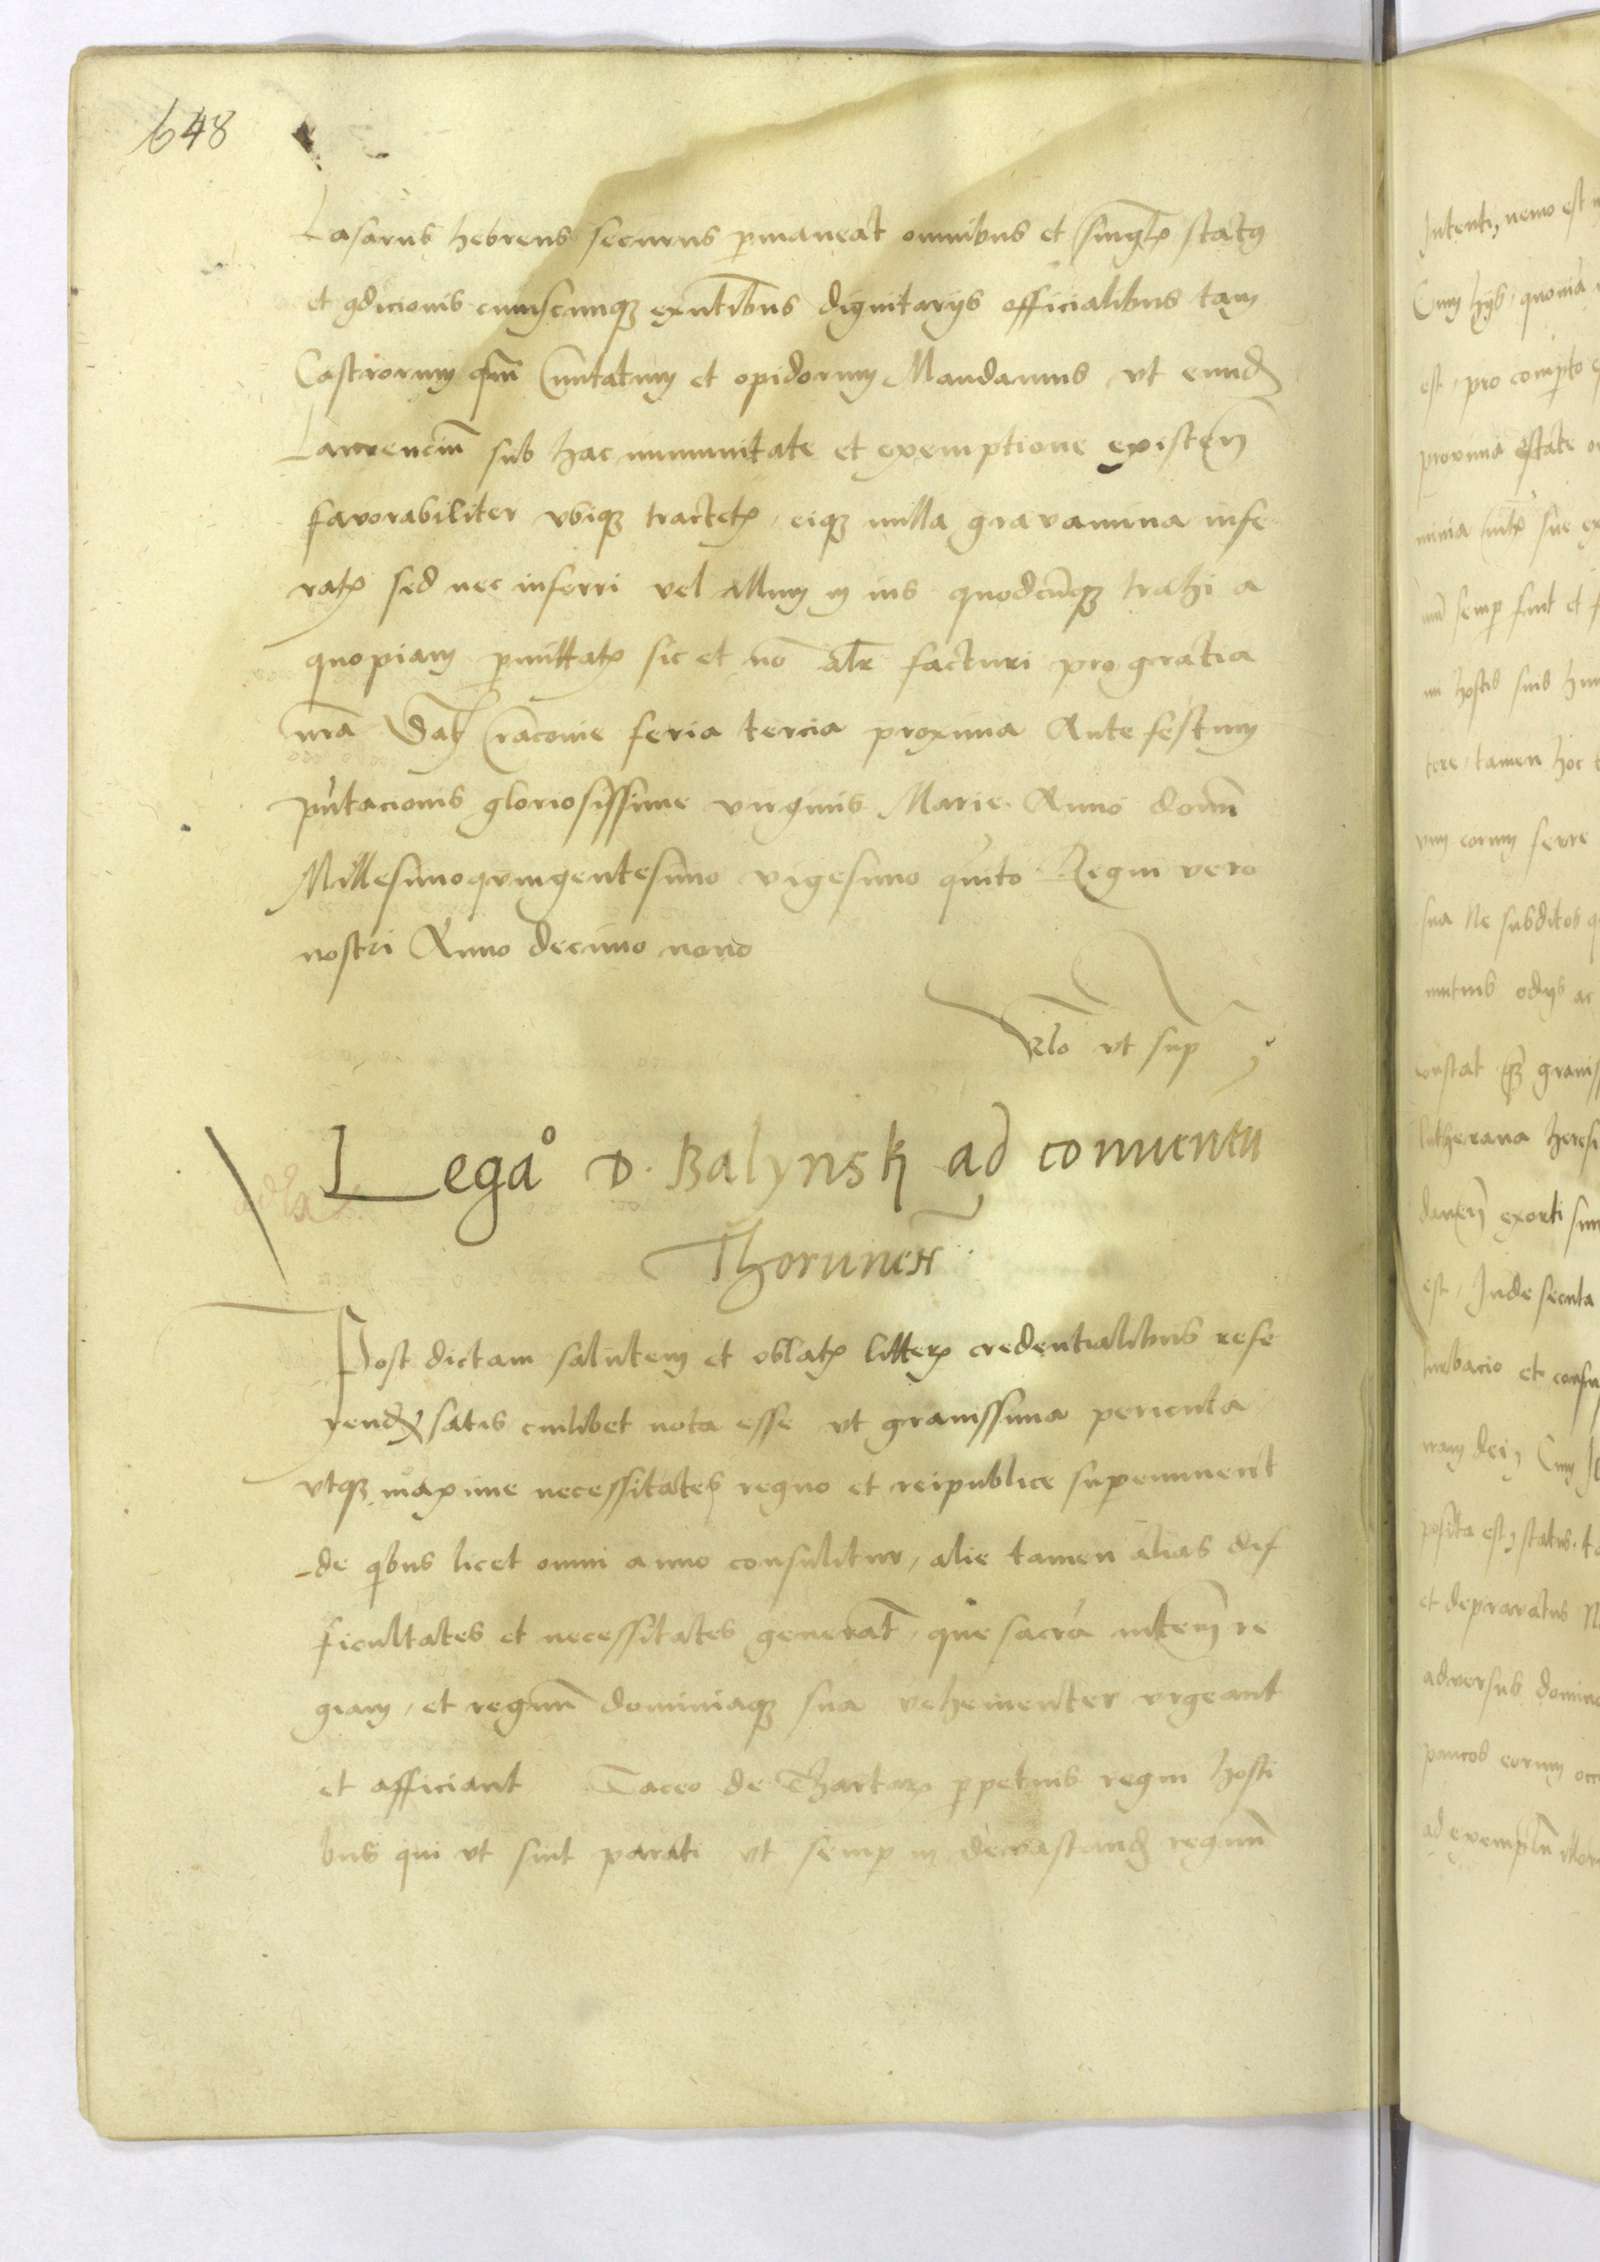 648
Lasarus hebreus securus p̄maneat omnibus et singl̄r status
et ꝯdicionis cuiuscumqꝫ exn̄tibus dignitarijs officialibus tam
Castrorum qm̄ Ciuitatum et opidorum Mandamus vt eund
Laurenciū sub hac immunitate et exemptione existen̄
favorabiliter vbiqꝫ tractetꝭ, eiqꝫ nulla gravamina infe
ratꝭ sed nec inferri vel illum in ius quodcūqꝫ trahi a
quopiam p̄mittatꝭ sic et nō alr̄ facturi pro gratia
nr̄a Dat Cracovie feria tercia proxima Ante festum
pn̄tacionis gloriosissime virginis Marie. Anno domī
Millesimoquingentesimo vigesimo quīto Regni vero
nostri Anno decimo nono
Rlo vt sup
Legaº D. Balynskj ad conventū
Thorunen̄
Post dictam salutem et oblatꝭ litterꝭ credentialibus refe
rend satis cuilibet nota esse vt gravissima pericula
vtqꝫ maxime necessitates regno et reipublice supereminent
de qibus licet omni anno consulitur, alie tamen alias dif
ficultates et necessitates generāt, que sacrā mtem̄ re
giam, et regnum̄ dominiaqꝫ sua vehementer vrgeant
et afficiant Taceo de Thartarꝭ p̄petuis regni hosti
bus qui vt sint parati vt semp in devastand regnum̄
Intenti, nemo est
Cum hijs, quoniā
est, pro comperto
proxima estate
semp sunt et
hostes suis
tere, tamen hoc
eorum ferre
sua Ne subditos
mutuis odijs ac
constat qꝫ
lutherana heresi
exorti sun
est, Inde secuta
turbacio et
ram dei, Cum
posita est, status.
et depravatus
adversus domin
paucos eorum
ad exemplū illor